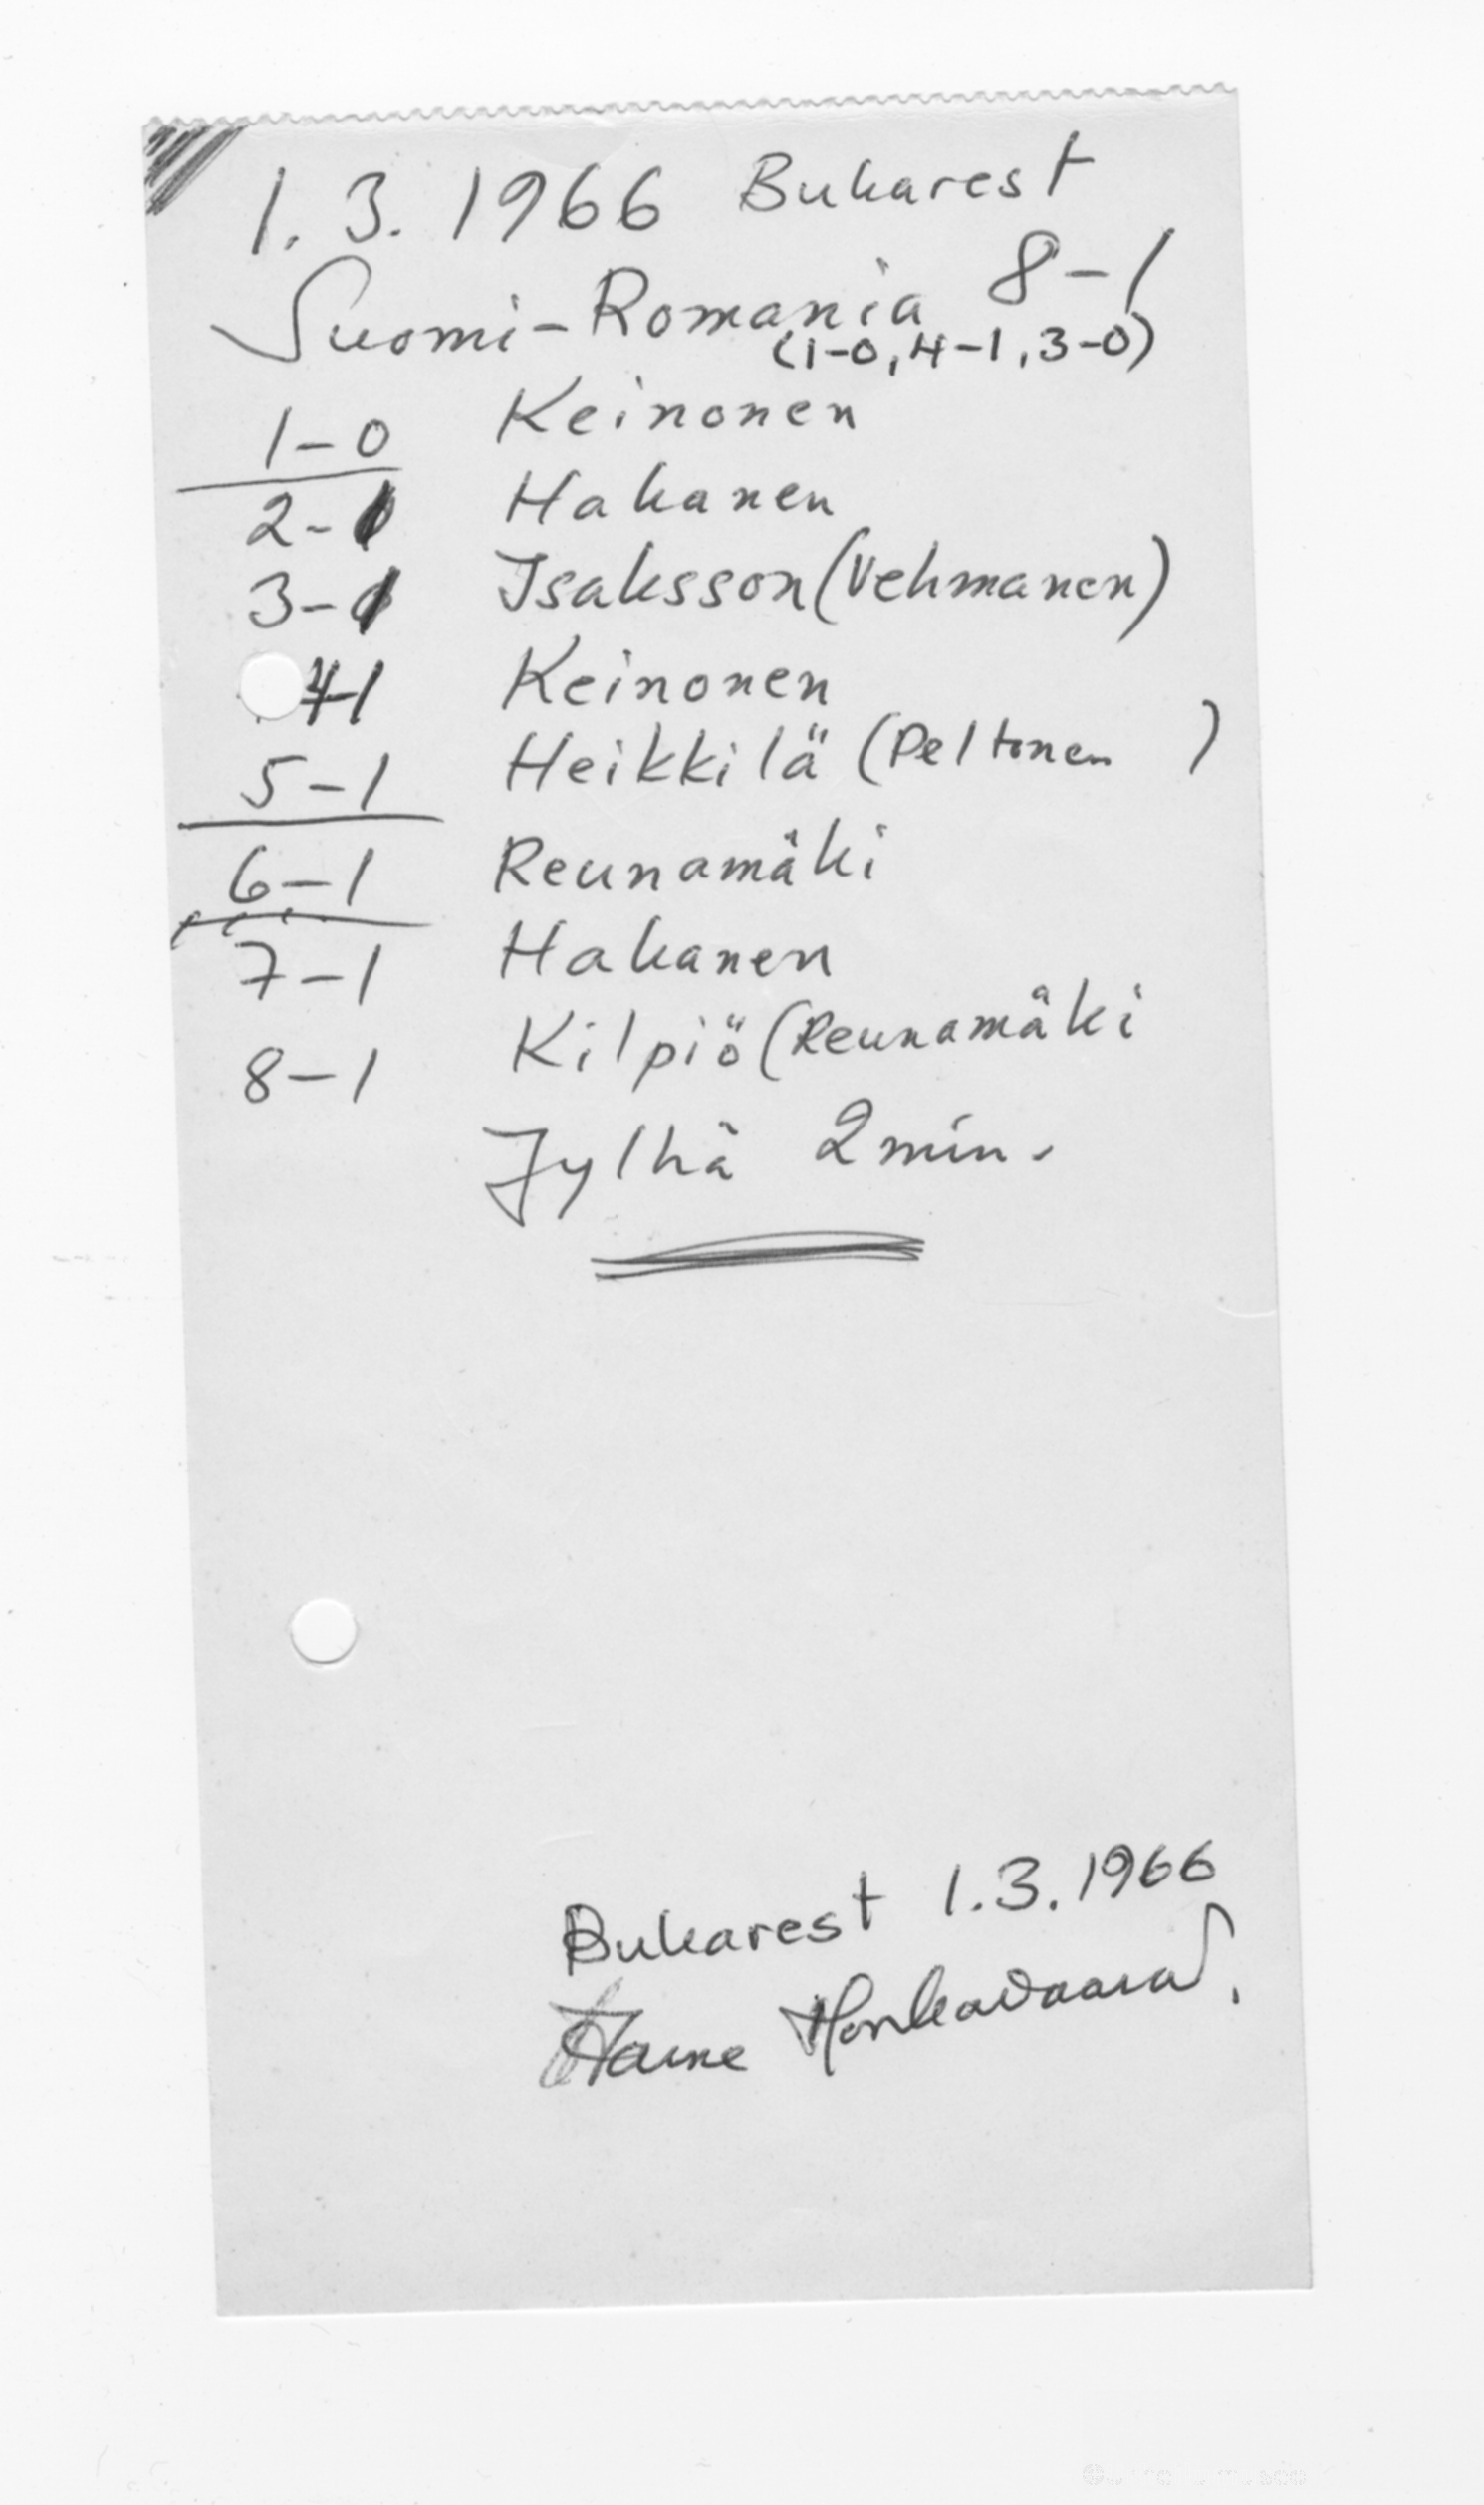 1. 3. 1966 Bukarest
Suomi-Romania 8-1
(1-0, 4-1, 3-0)
1-0 Keinonen
2-1 Hakanen
3-1 Isaksson (Vehmanen)
4-1 Keinonen
5-1 Heikkilä (Peltonen )
6-1 Reunamäki
7-1 Hakanen
8-1 Kilpiö (Reunamäki
Jylhä 2 min.
Bukarest 1.3.1966
Honkavaara.